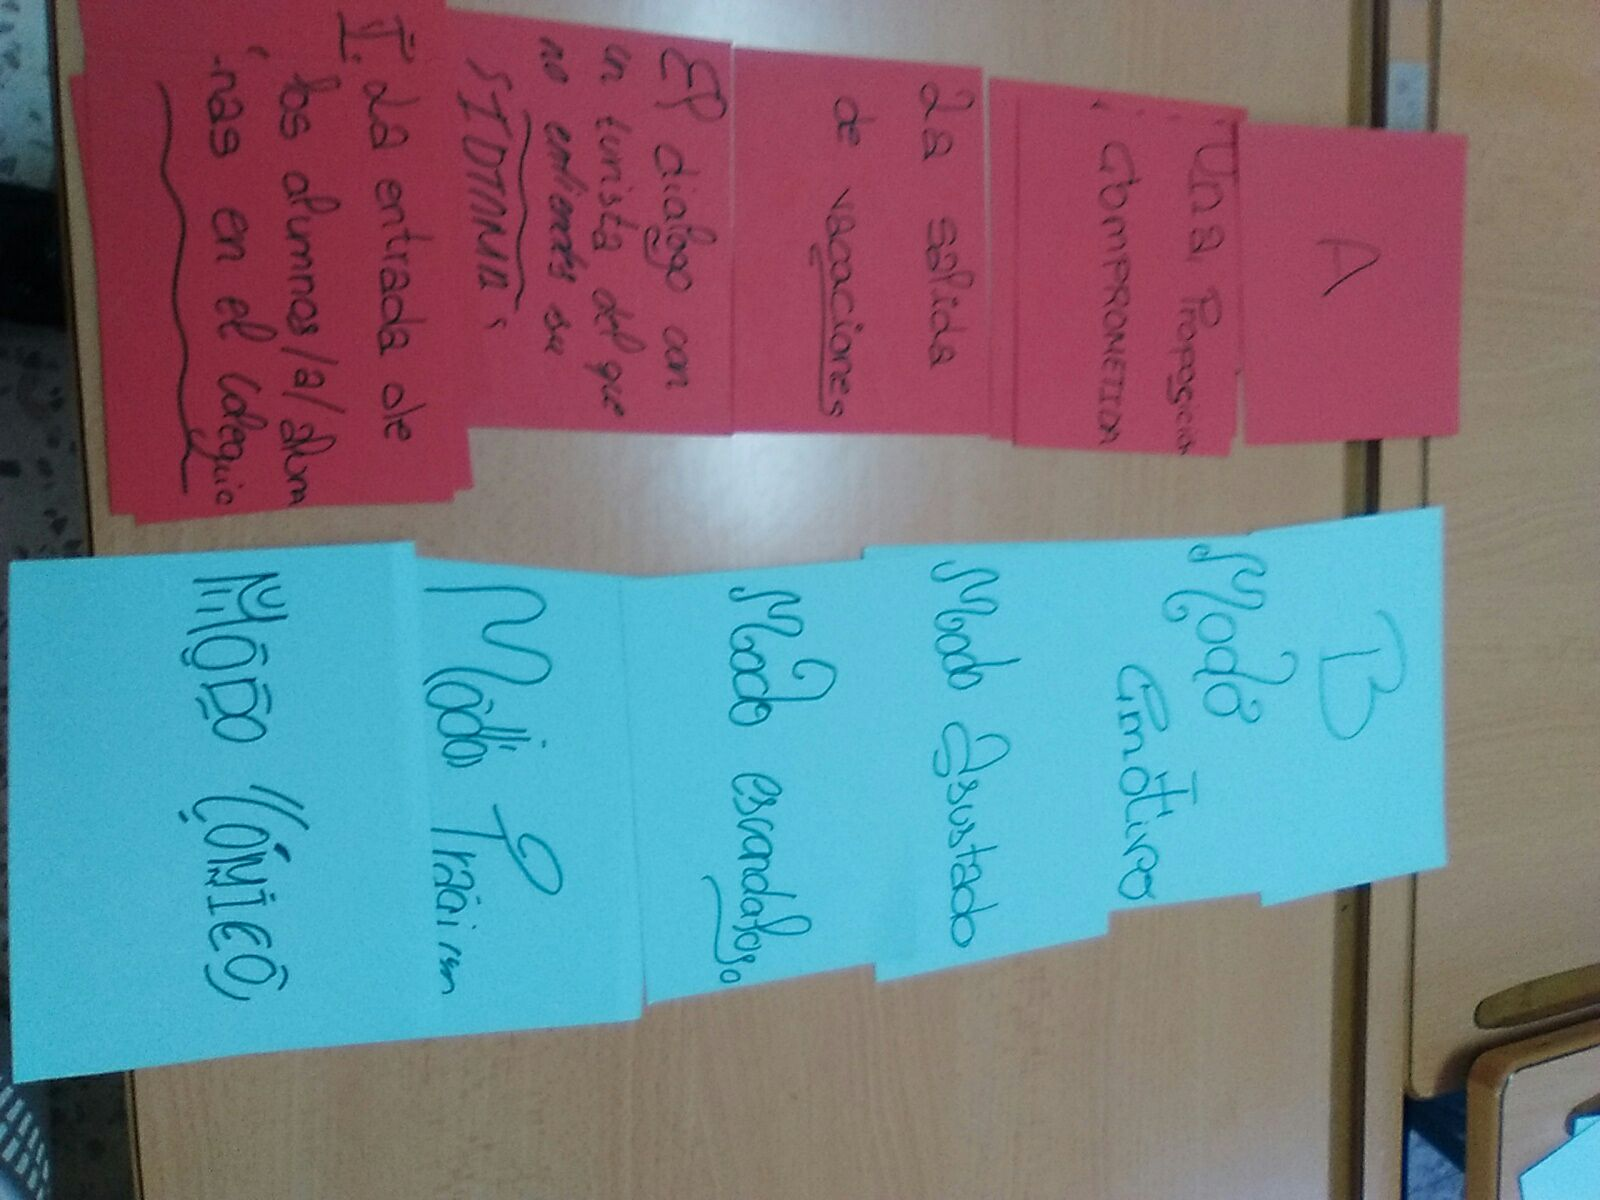 A
Una Proposición
COMPROMETIDA
La salida
de vacaciones
El dialogo con
un turista del que
no entiendes su
IDIOMA
La entrada de
los alumnos/a/alum
-nas en el Colegio
B
Modo
Emotivo
Modo Asustado
Modo escandaloso
Modo
MODO CÓMICO